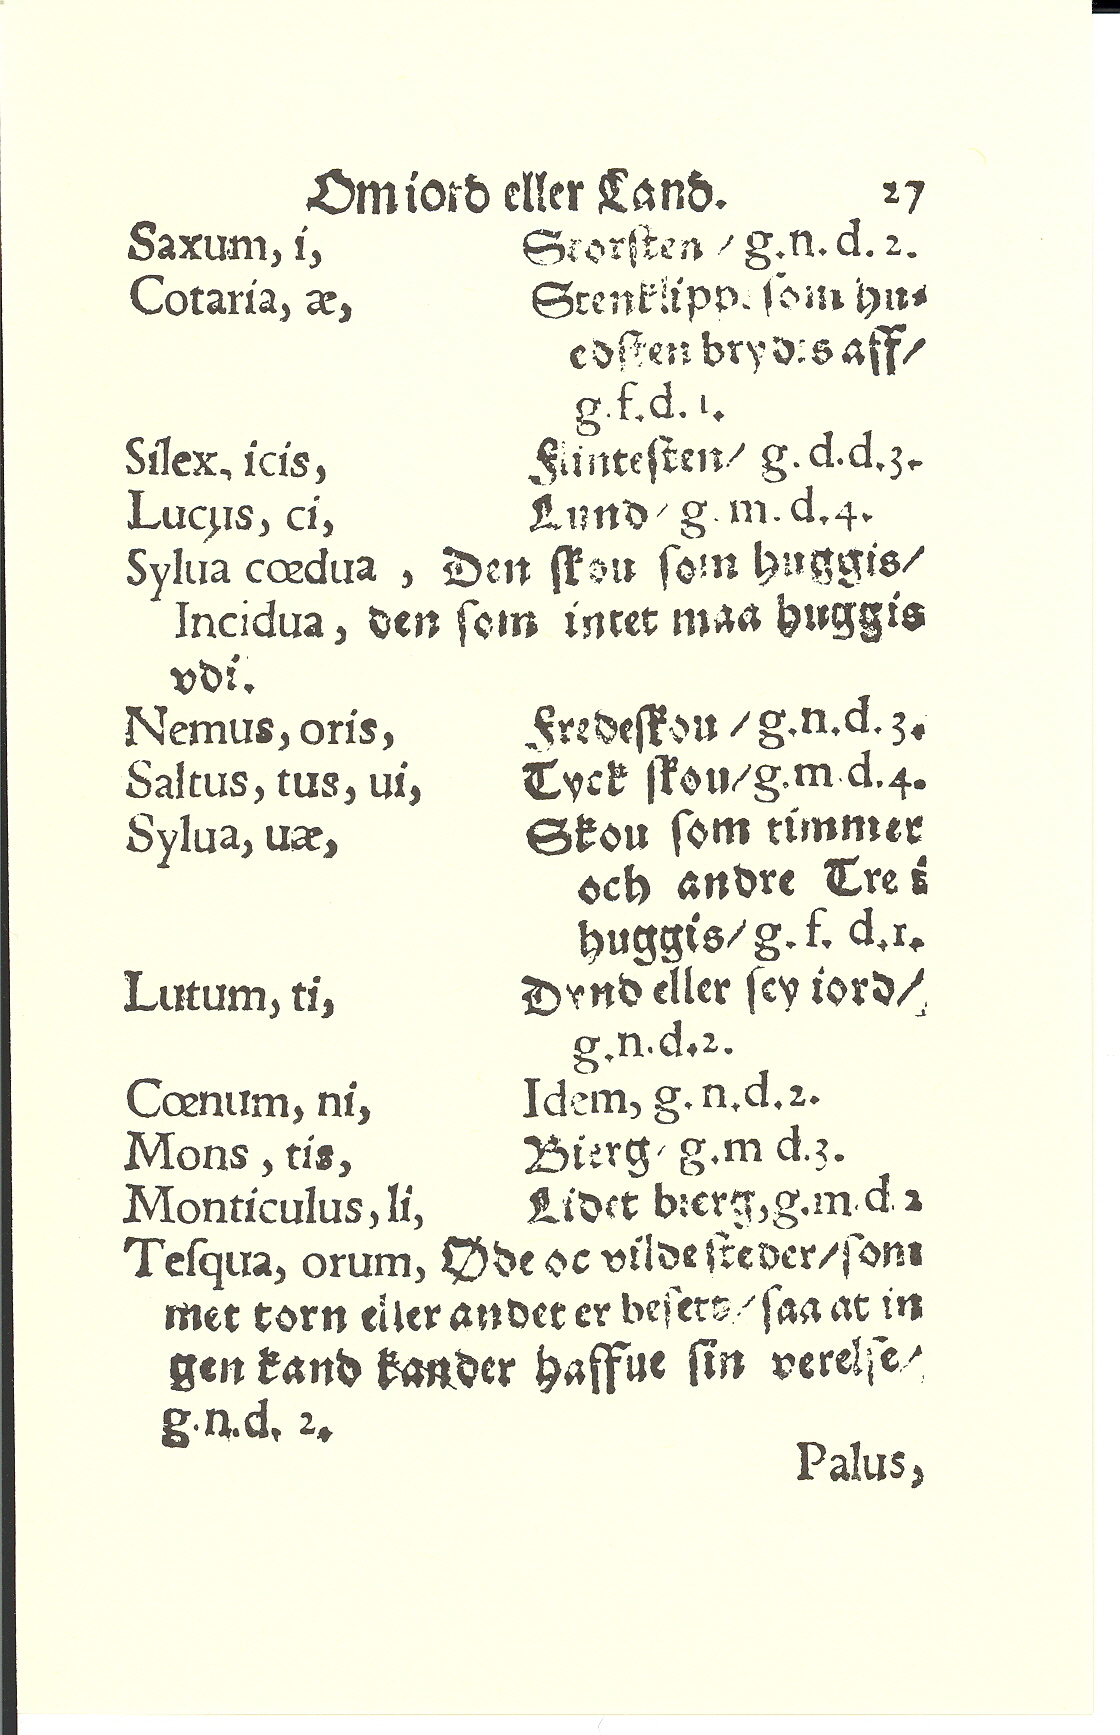 Om iord eller Land. 27
Saxum, i, Storſten / g.n. d. 2.
Cotaria, æ, Stenklippe ſom hu⸗
edſten brydis aff/
g.f.d. 1.
Silex, icis, Flinteſten/ g. d.d.3.
Lucus, ci, Lund/ g.m.d.4.
Sylua cœdua, Den ſkou ſom huggis/
Incidua, den ſom intet maa huggis
vdi.
Nemus, oris, Fredeſkou / g.n.d.3.
Saltus, tus, ui, Tyck ſkou/g.m d.4.
Sylua, uæ, Skou ſom timmer
och andre Tre i
huggis/ g. f. d.1.
Lutum, ti, Dynd eller ſey iord/
g.n.d.2.
Cœnum, ni, Idem, g. n.d.2.
Mons, tis, Bierg/ g.m d.3.
Monticulus, li, Lidet bierg, g.m.d.2
Teſqua, orum, Øde oc vilde ſteder/ſom
met torn eller andet er beſett/ ſaa at in
gen kand kander haffue ſin verelſe/
g.n.d. 2.
Palus,